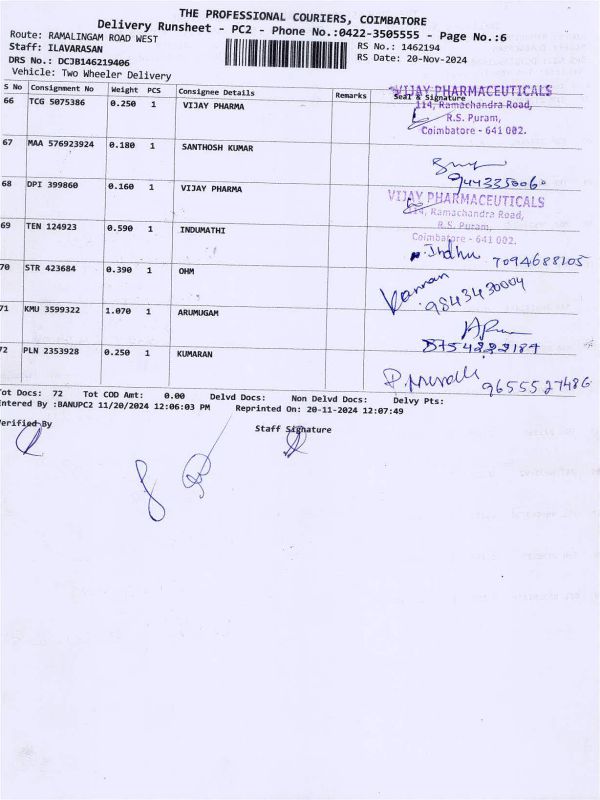 THE PROFESSIONAL COURIERS, COIMBATORE
Delivery Runsheet - PC2 - Phone No.:0422-3505555 - Page No.:6
Route: RAMALINGAM ROAD WEST
Staff: ILAVARASAN RS No.: 1462194
DRS No.: DCJB146219406 RS Date: 20-Nov-2024
Vehicle: Two Wheeler Delivery
S No Consignment No Weight PCS Consignee Details Remarks Seal & Signature
66 TCG 5075386 0.250 1 VIJAY PHARMA
VIJAY PHARMACEUTICALS
114, Ramachandra Road,
R.S. Puram,
Coimbatore - 641 002.
67 MAA 576923924 0.180 1 SANTHOSH KUMAR
68 DPI 399860 0.160 1 VIJAY PHARMA
VIJAY PHARMACEUTICALS
114, Ramachandra Road,
R.S. Puram,
Coimbatore - 641 002.
69 TEN 124923 0.590 1 INDUMATHI
Indhu 7094688105
70 STR 423684 0.390 1 OHM
Kannan
9843430004
71 KMU 3599322 1.070 1 ARUMUGAM
72 PLN 2353928 0.250 1 KUMARAN
9655527486
Tot Docs: 72 Tot COD Amt: 0.00 Delvd Docs: Non Delvd Docs: Delvy Pts:
Entered By :BANUPC2 11/20/2024 12:06:03 PM Reprinted On: 20-11-2024 12:07:49
Verified By Staff Signature